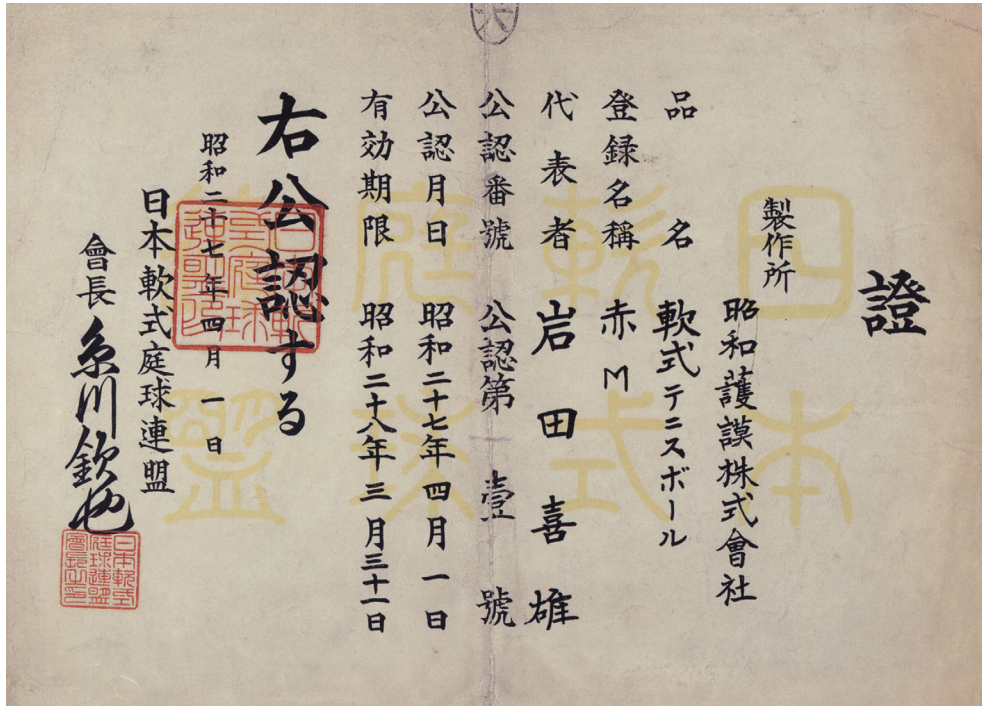 證
製作所 昭和護謨株式會社
品名 軟式テニスボール
登録名稱 赤M
代表者 岩田喜雄
公認番號 公認第壹號
公認月日 昭和二十七年四月一日
有効期限 昭和二十八年三月三十一日
右公認する
昭和二十七年四月一日
日本軟式庭球連盟
會長 糸川欽也
日本軟式庭球連盟
日本軟式庭球連盟會長之印